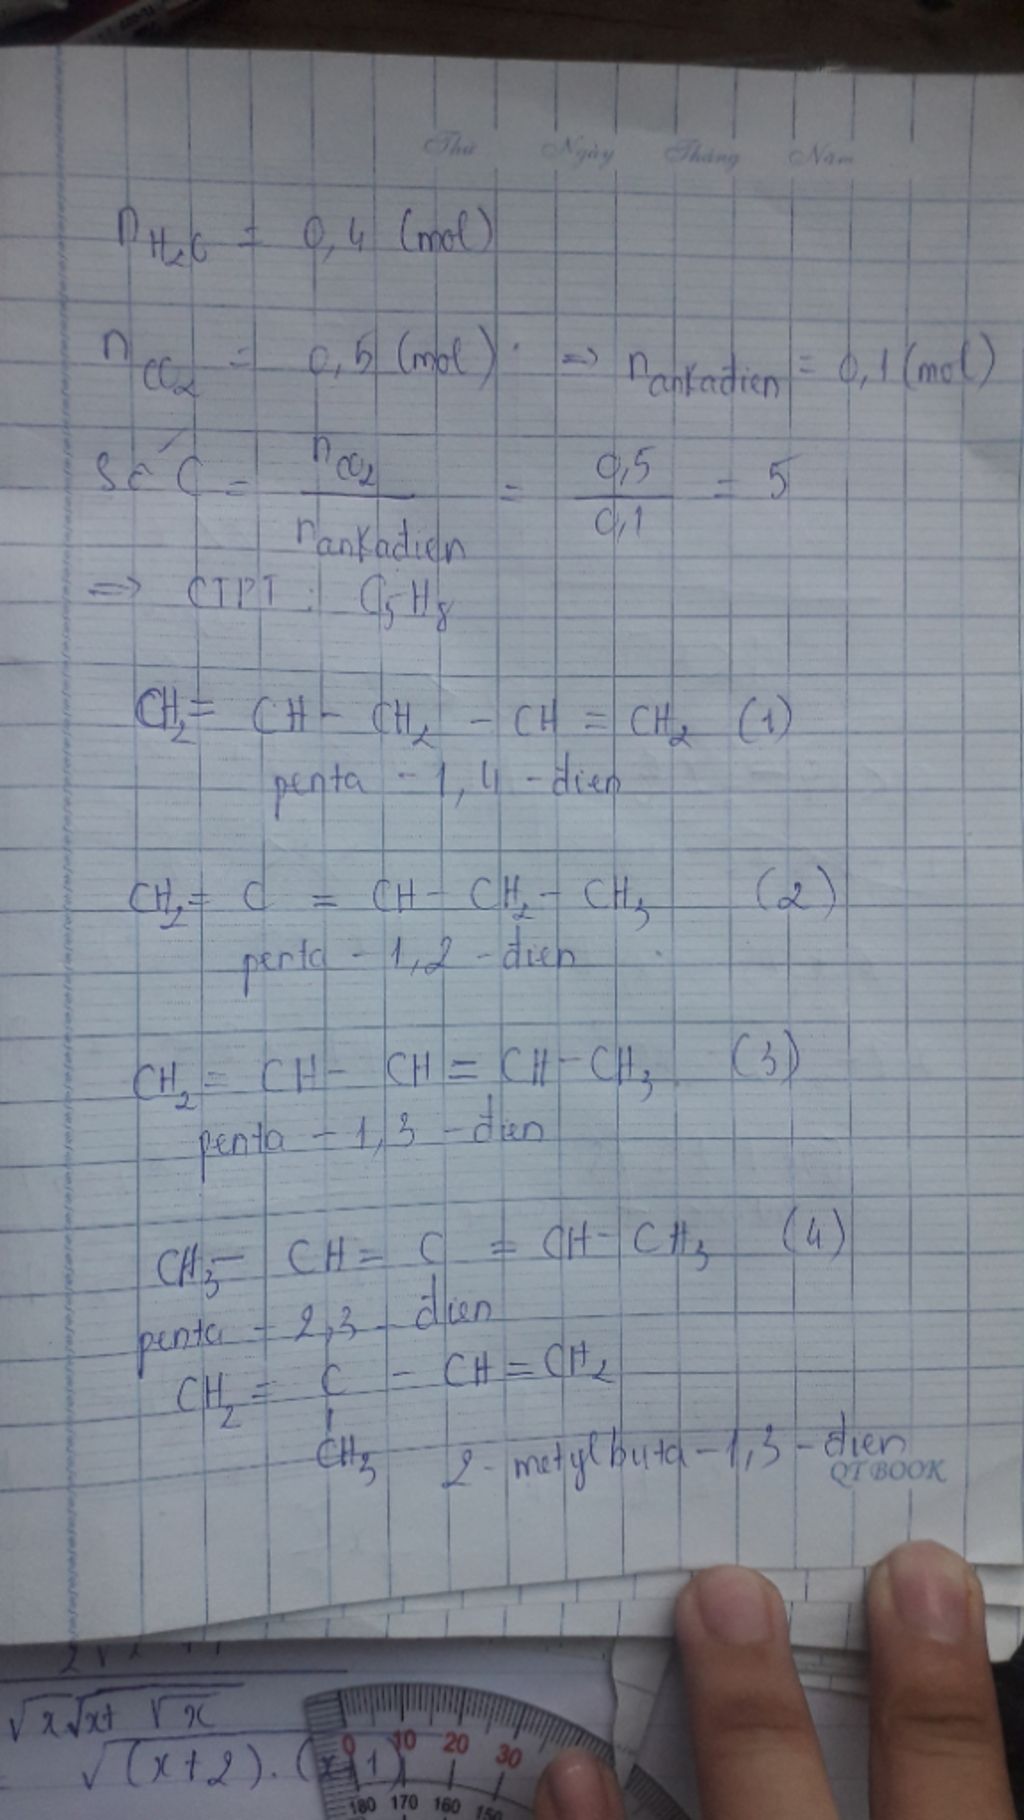 Thứ Ngày Tháng Năm
n H₂O = 0,4 (mol)
n CO₂ = 0,5 (mol) => n ankadien = 0,1 (mol)
Số C = n CO₂ / n ankadien = 0,5 / 0,1 = 5
=> CTPT : C₅H₈
CH₂ = CH - CH₂ - CH = CH₂ (1)
penta - 1,4 - dien
CH₂ = C = CH - CH₂ - CH₃ (2)
penta - 1,2 - dien
CH₂ = CH - CH = CH - CH₃ (3)
penta - 1,3 - dien
CH₃ - CH = C = CH - CH₃ (4)
penta - 2,3 - dien
CH₂ = C - CH = CH₂
CH₃ 2 - metylbuta - 1,3 - dien
QTBOOK
√x √x+ √x
√(x+2).(x 1)
0 10 20 30
180 170 160 150